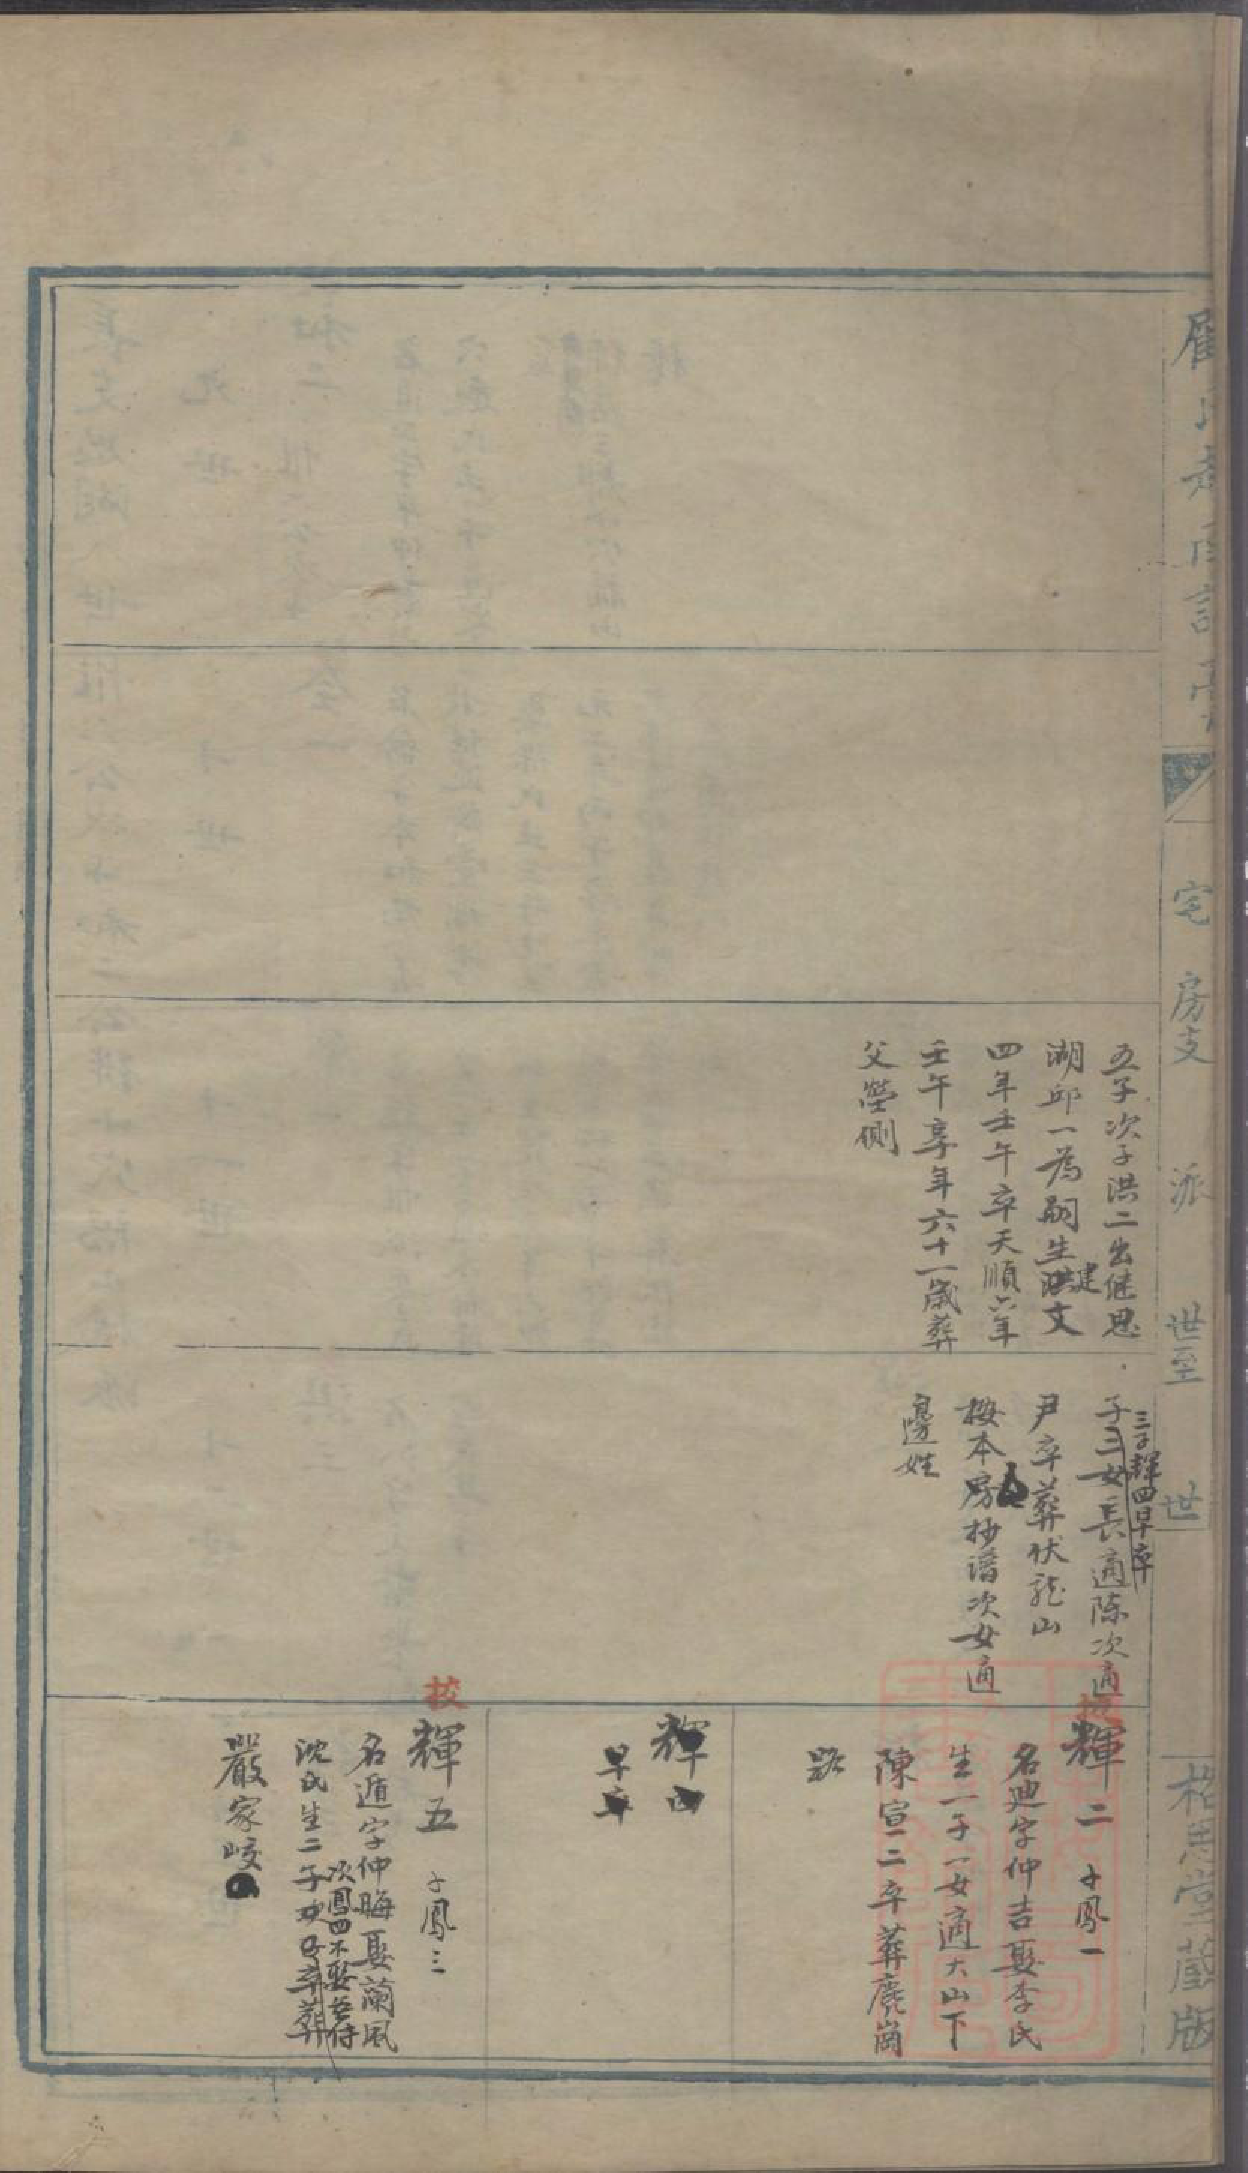 宅
房支
派
世至
世
格思堂藏版
五子次子洪二出继思
湖邱一為嗣生建文
四年壬午卒天順六年
壬午享年六十一歲葬
父塋側
三子輝四早卒
子三女長適陈次適
尹卒葬伏龍山
按本房抄譜次女適
邊姓
輝二 子鳳一
名迪字仲吉娶李氏
生一子一女適大山下
陳宣二卒葬鹿崗
跽
輝四
早卒
校
輝五 子鳳三
名遁字仲晦娶蘭風
沈氏生二子
次鳳四不娶無傳
卒葬
嚴家岐